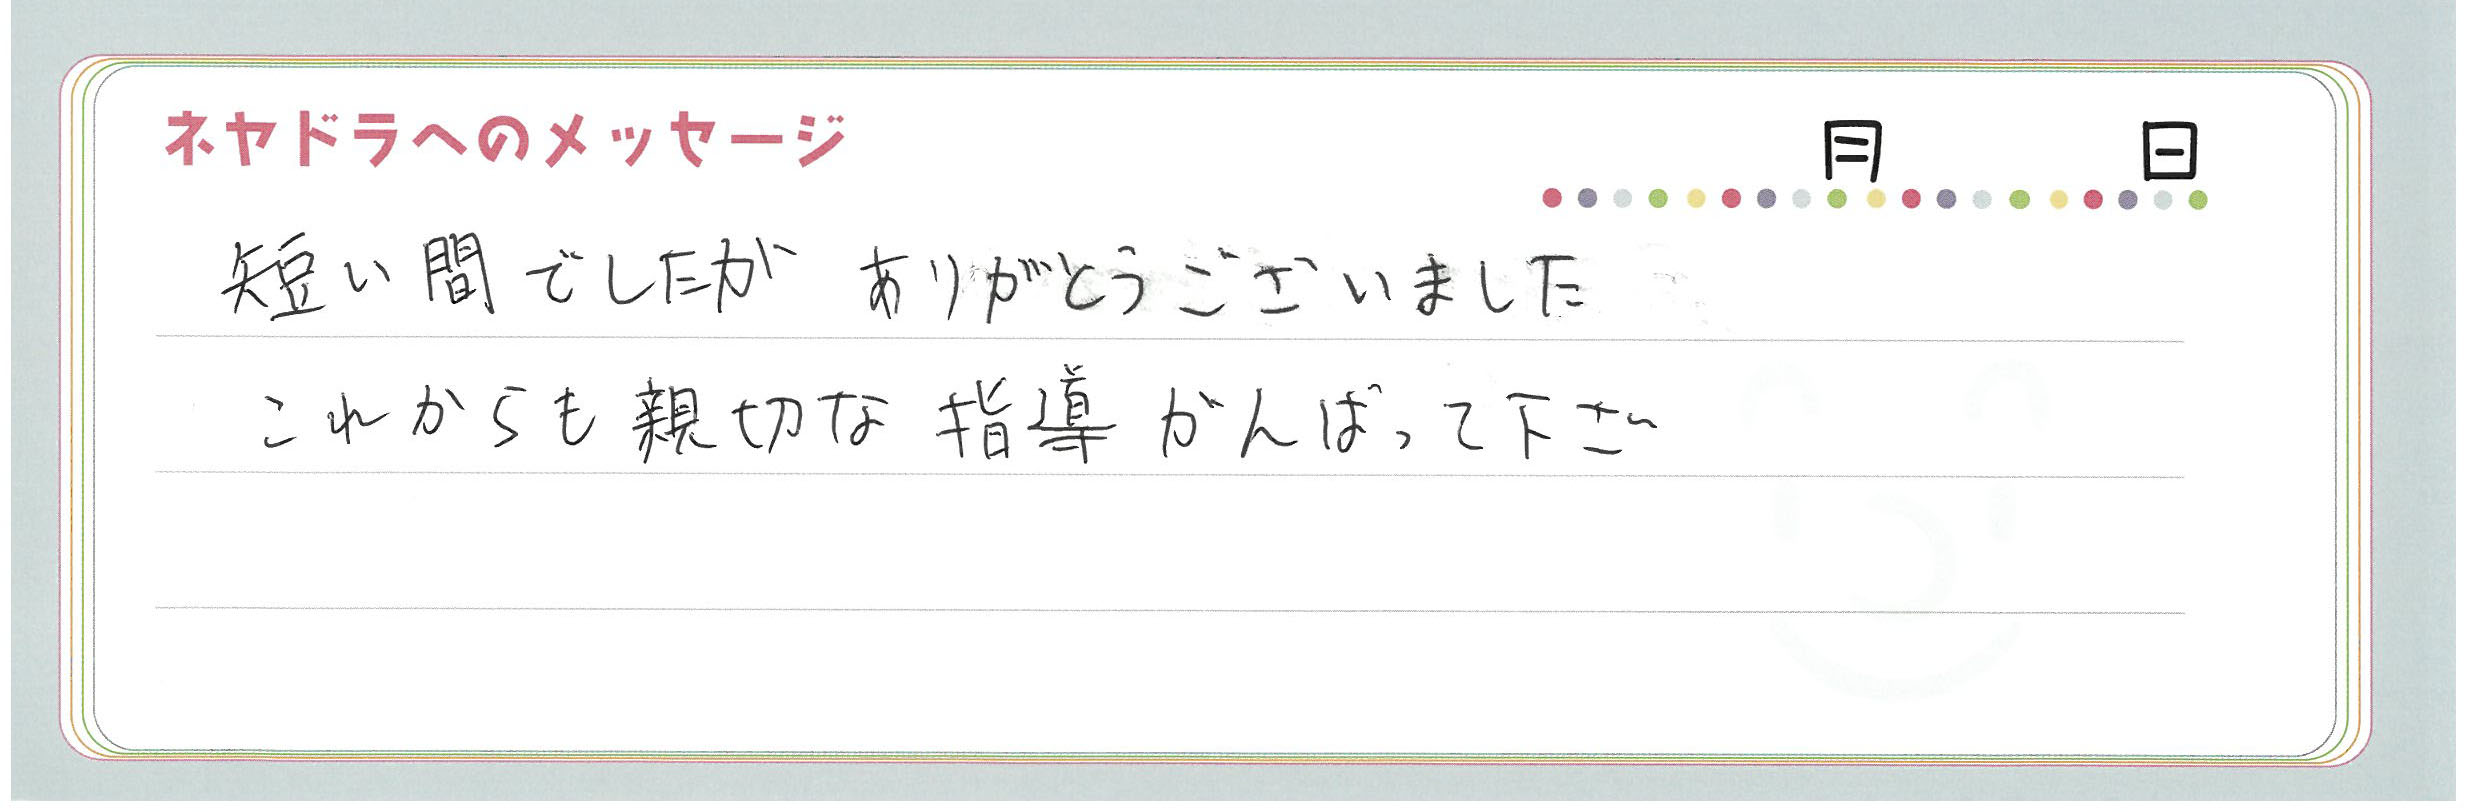 ネヤドラへのメッセージ
月 日
短い間でしたが ありがとうございました
これからも親切な指導がんばって下さい